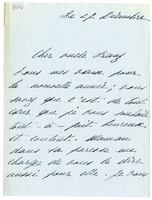 Le 27 Décembre
Cher oncle Franz
Tous mes vœux pour
la nouvelle année; vous
savez que c'est de tout
cœur que je vous souhaite
tout à fait heureux
et content. Maman
dans sa paresse me
charge de vous le dire
aussi pour elle. Je vous